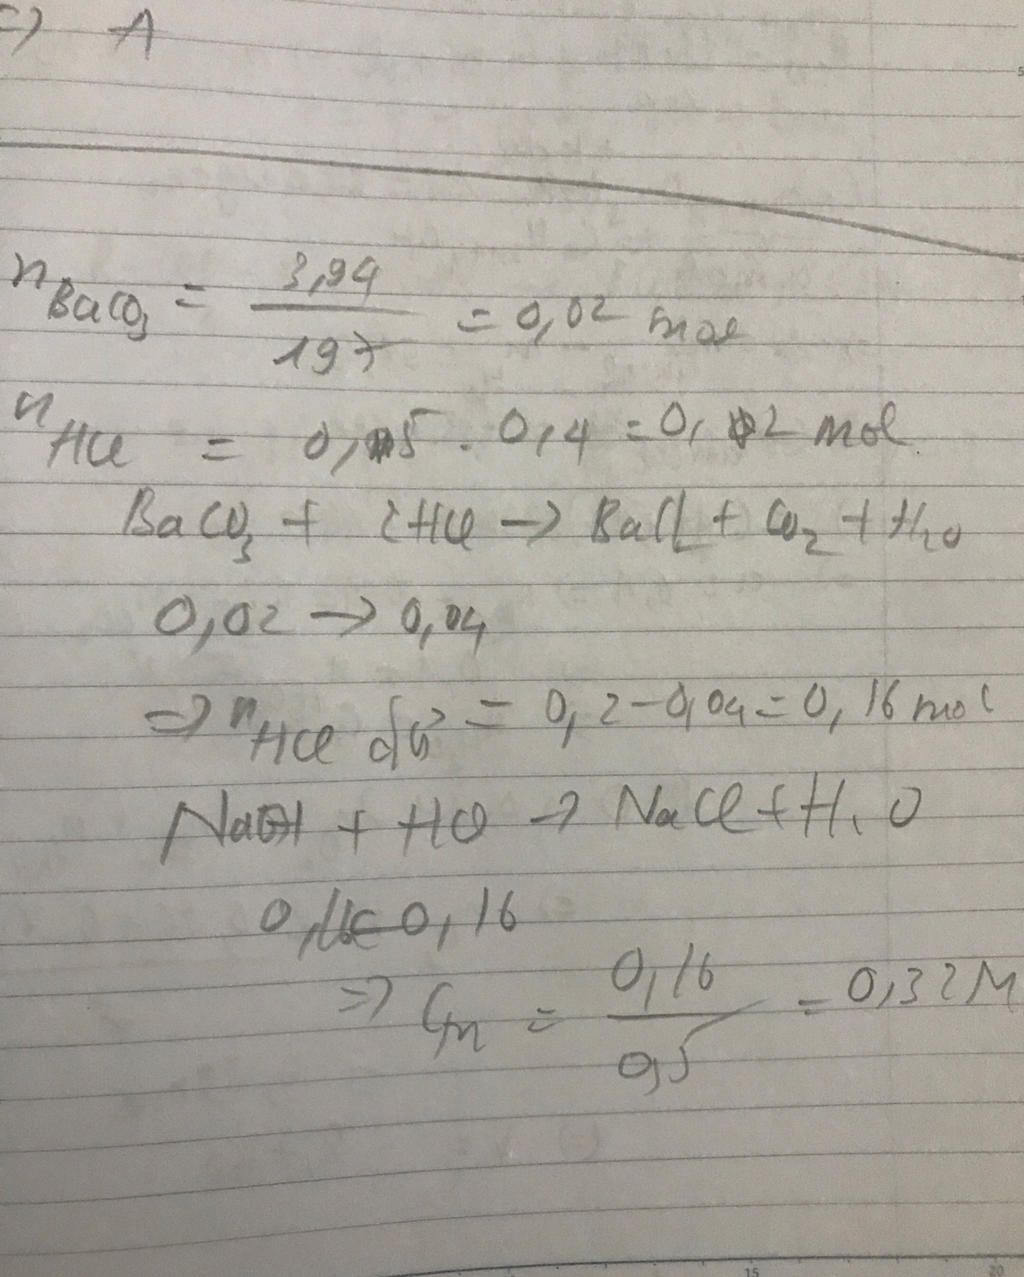 => A
n BaCO3 = 3,94 / 197 = 0,02 mol
n HCl = 0,5 . 0,4 = 0,2 mol
BaCO3 + 2HCl -> BaCl2 + CO2 + H2O
0,02 -> 0,04
=> n HCl dư = 0,2 - 0,04 = 0,16 mol
NaOH + HCl -> NaCl + H2O
0,16 <- 0,16
=> CM = 0,16 / 0,5 = 0,32M
5
15
20